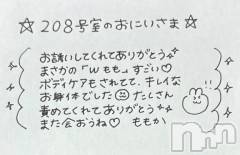 ☆208号室のおにいさま☆
お誘いしてくれてありがとう
まさかの「Wもも」すごい♡
ボディケアもされてて、キレイな
お身体でした☺たくさん
責めてくれてありがとう
また会おうね♡ ももか